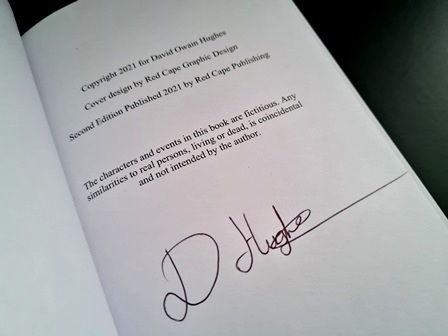 Copyright 2021 for David Owain Hughes
Cover design by Red Cape Graphic Design
Second Edition Published 2021 by Red Cape Publishing
The characters and events in this book are fictitious. Any
similarities to real persons, living or dead, is coincidental
and not intended by the author.
D Hughes